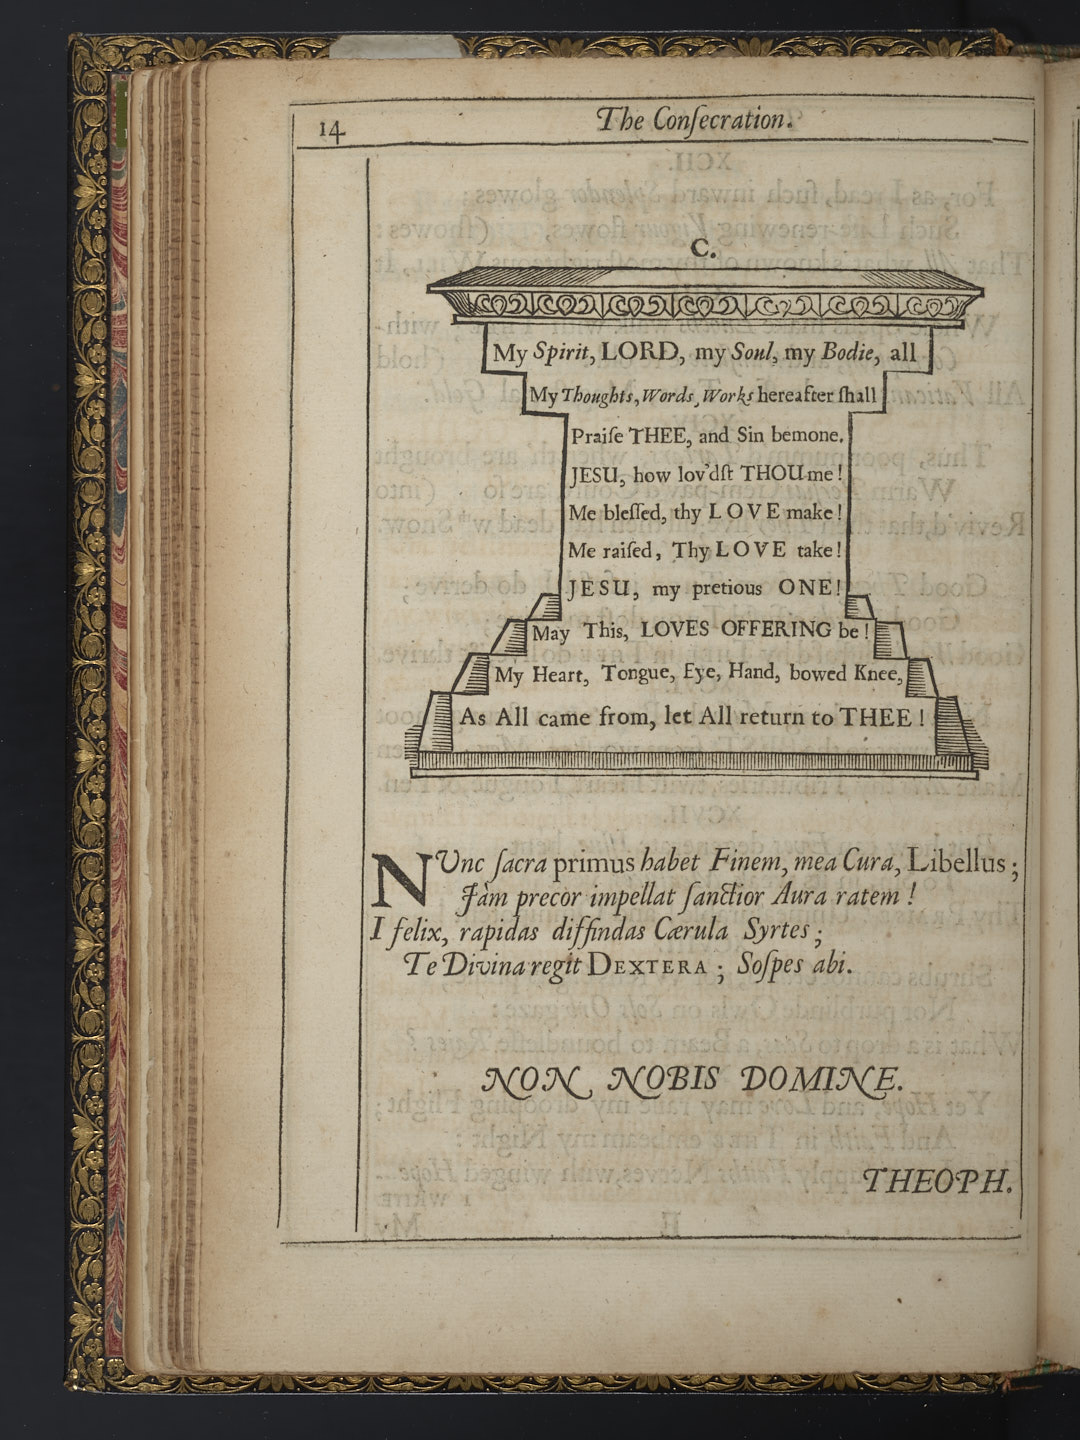 14
The Conſecration.
C.
My Spirit, LORD, my Soul, my Bodie, all
My Thoughts, Words, Works hereafter ſhall
Praiſe THEE, and Sin bemone.
JESU, how lov'dſt THOU me!
Me bleſſed, thy LOVE make!
Me raiſed, Thy LOVE take!
JESU, my pretious ONE!
May This, LOVES OFFERING be!
My Heart, Tongue, Eye, Hand, bowed Knee,
As All came from, let All return to THEE!
NUnc ſacra primus habet Finem, mea Cura, Libellus;
Jàm precor impellat ſanctior Aura ratem!
I felix, rapidas diffindas Cærula Syrtes;
Te Divina regit DEXTERA; Soſpes abi.
NON NOBIS DOMINE.
THEOPH.